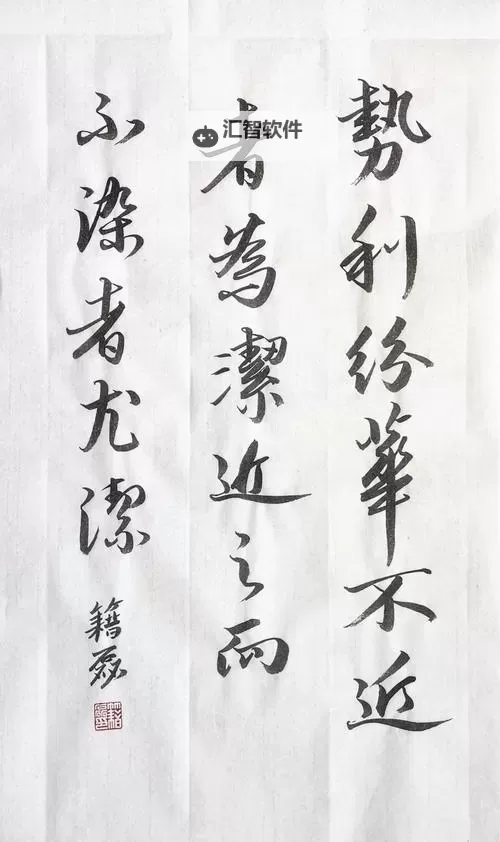 勢利紛華不近
者為潔近之而
不染者尤潔
籍磊
汇智软件